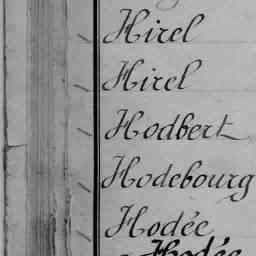 Hirel
Hirel
Hodbert
Hodebourg
Hodée
Hodée